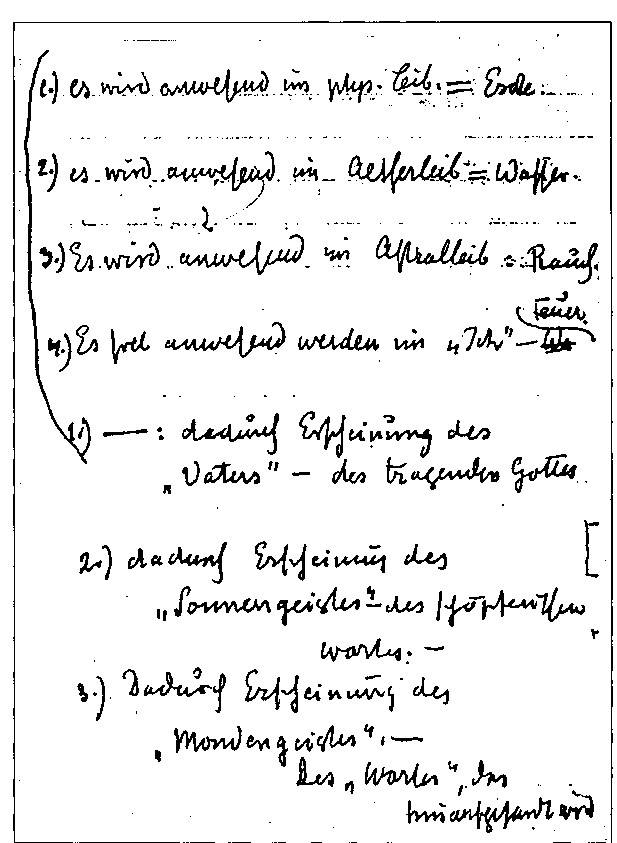 1.) es wird anwesend im phys. Leib. = Erde.
2.) es wird anwesend im Aetherleib = Wasser.
3.) Es wird anwesend im Astralleib = Rauch.
Feuer.
4.) Es soll anwesend werden im „Ich" –
1.) — : dadurch Erscheinung des
„Vaters" – des tragenden Gottes
2.) dadurch Erscheinung des
„Sonnengeistes" – des schöpferischen
Wortes. –
3.) Dadurch Erscheinung des
„Mondengeistes". –
Des „Wortes", das
hinausgesandt wird